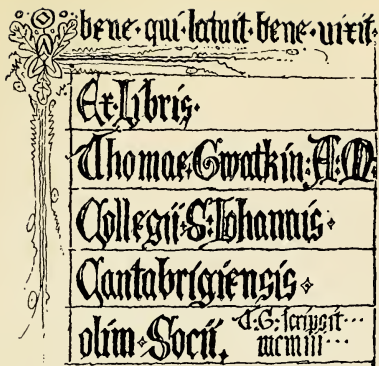 bene·qui·latuit·bene·vixit·
Ex·Libris·
Thomae·Gwatkin:A:M:
Collegii·S:Iohannis·
Cantabrigiensis
olim·Socii,
T:G: scripsit···
mcmiii···